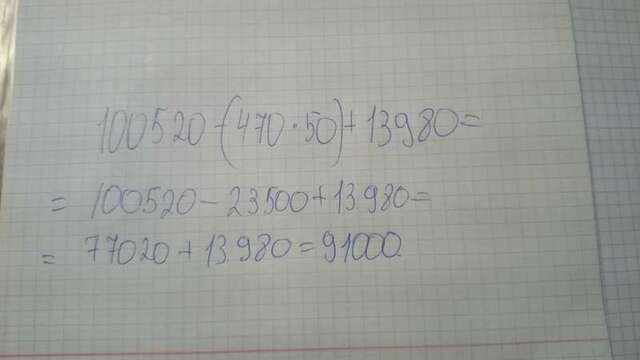 100520-(470·50)+13980=
= 100520-23500+13.980=
= 77020+13.980=91000.